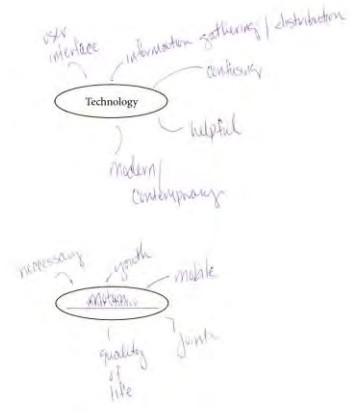 user
interface
information gathering / distribution
confusing
Technology
helpful
modern/
contemporary
necessary
youth
mobile
motion
joints
quality
of
life